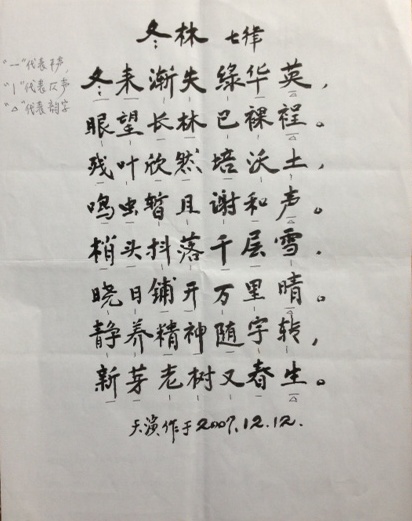 冬林 七律
"一"代表平声,
"丨"代表仄声
"△"代表韵字
冬来渐失绿华英,
眼望长林已裸裎。
残叶欣然培沃土,
鸣虫暂且谢和声。
梢头抖落千层雪.
晓日铺开万里晴。
静养精神随字转,
新芽老树又春生。
天演作于2007.12.12.